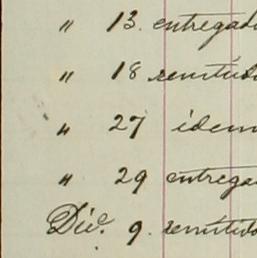 " 13. entregad
" 18 remitid
" 27 idem
" 29 entrega
Div. 9. remitido